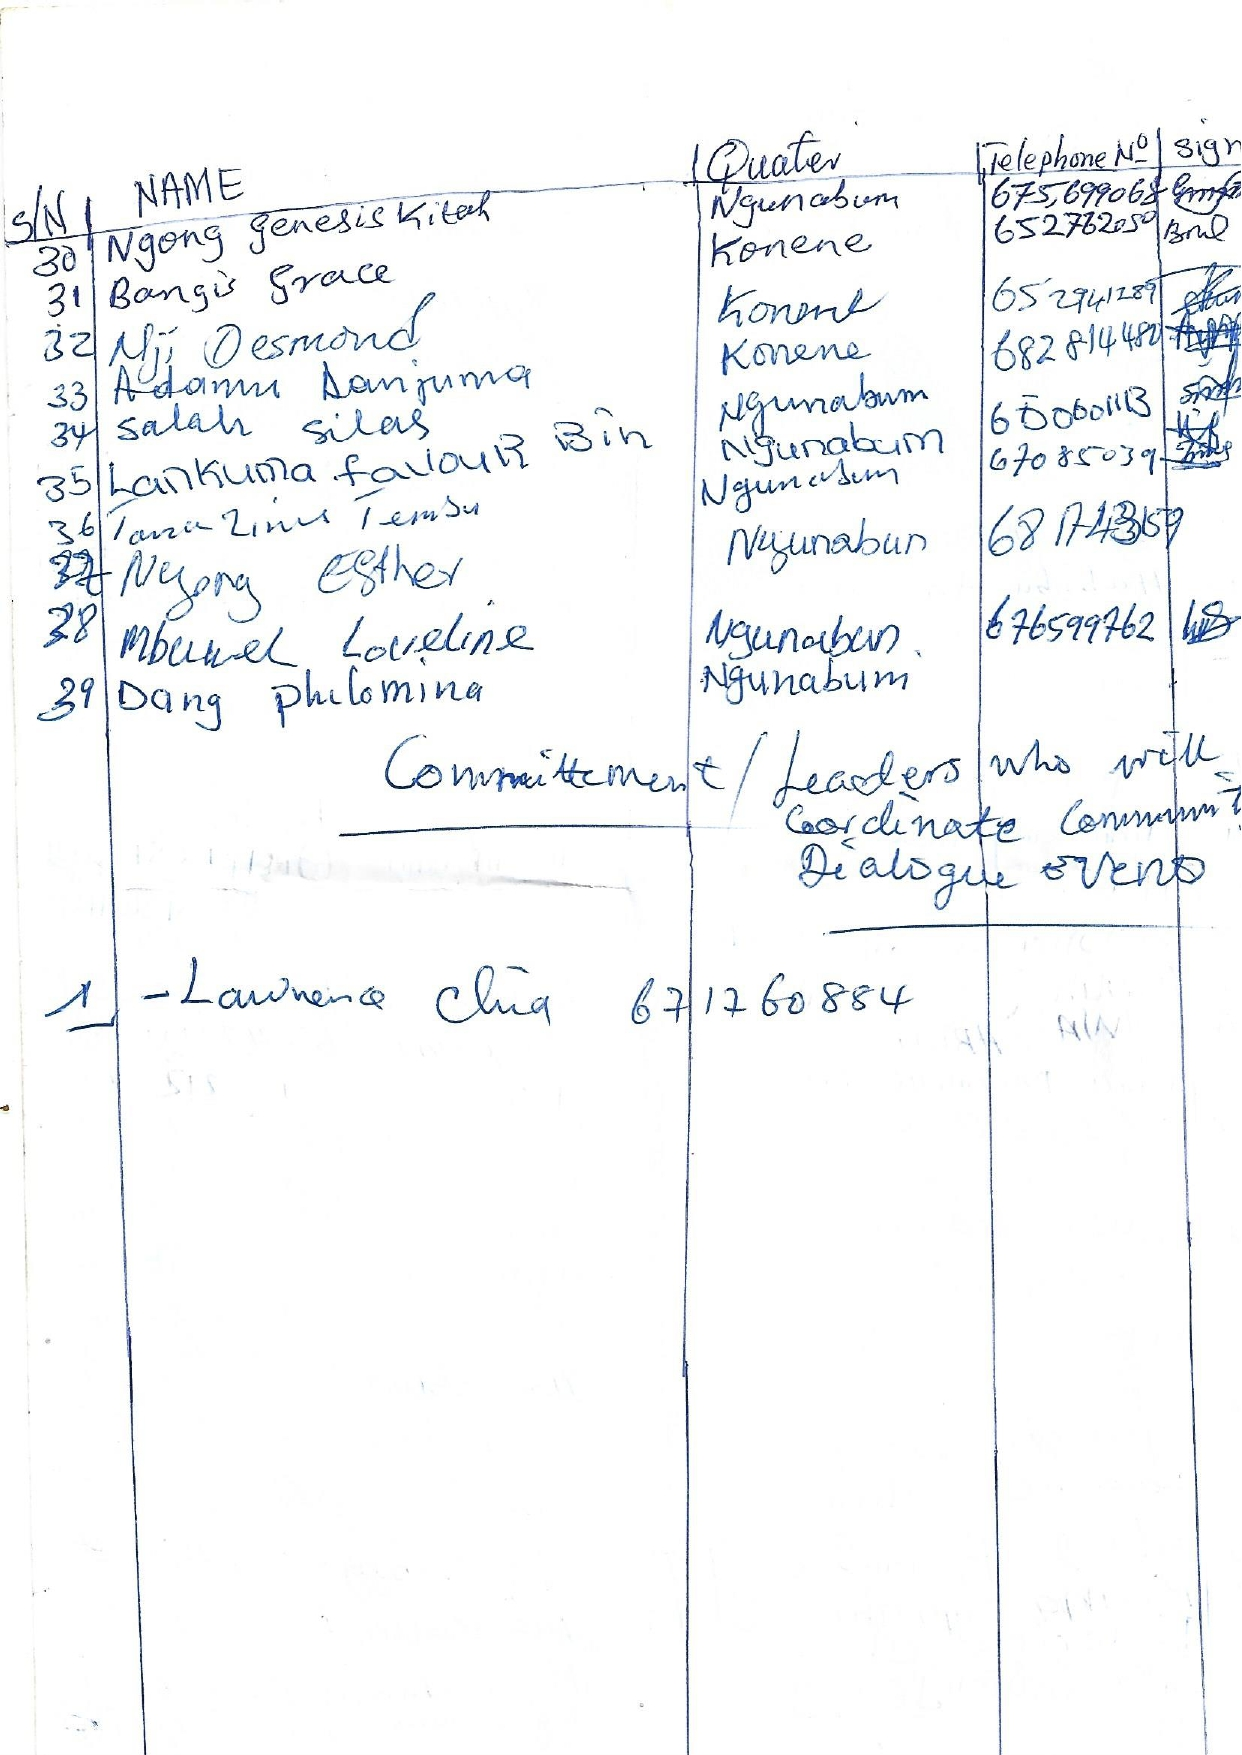 S/N NAME Quater Telephone No Sign
30 Ngong Genesis Kitah Ngunabum 675,699068
31 Bangis Grace Konene 652762050
32 Nji Desmond Konene 652941289
33 Adamu Danjuma Konene 682814480
34 Salah Silas Ngunabum 680060113
35 Lankuma favour Bin Ngunabum 67085039
36 Ngunabum
37 Ngong Esther Ngunabun
38 Loveline Ngunabun. 676599762
39 Dang philomina Ngunabum
Committement / Leaders who will
Coordinate Communit
Dialogue events
1 - Lawrence Chia 671760884